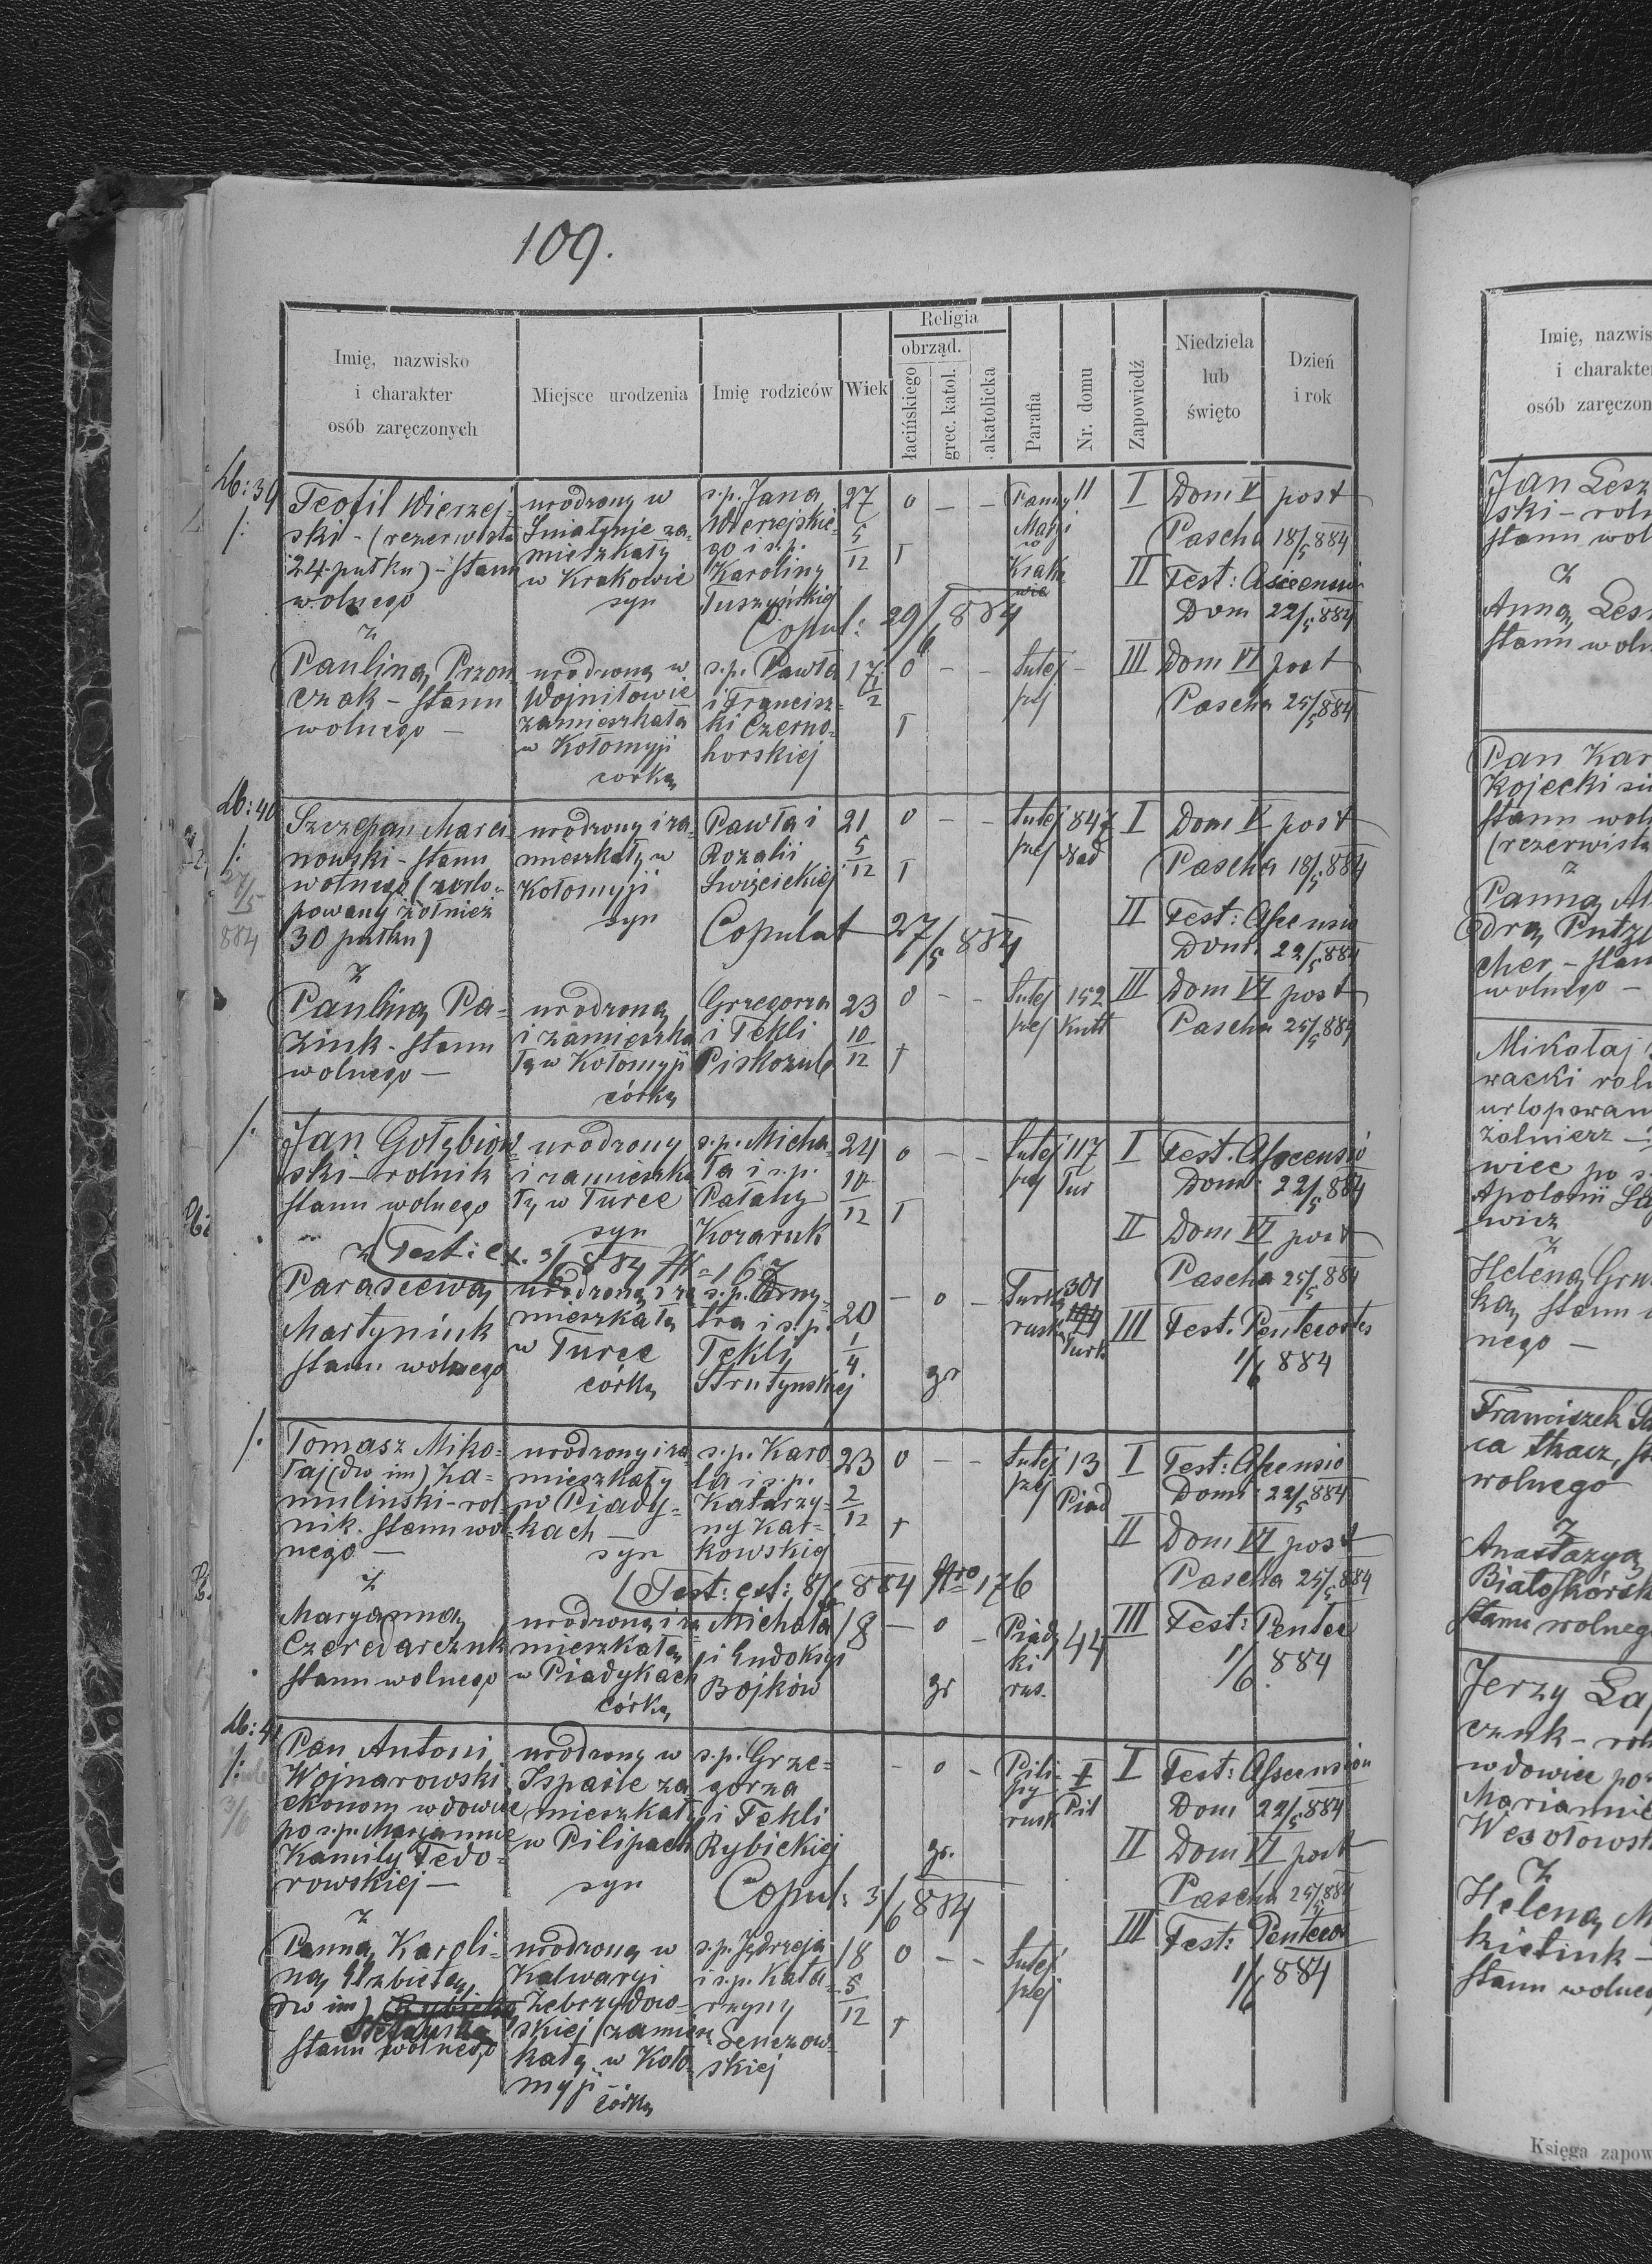 109.
Imię, nazwisko i charakter osób zaręczonych
Miejsce urodzenia
Imię rodziców
Wiek
Religia
obrząd.
łacińskiego
grec. katol.
akatolicka
Parafia
Nr. domu
Zapowiedź
Niedziela lub święto
Dzień i rok
Lb: 39
Teofil Wierzej-
ski - (rezerwista
24. pułku) - stanu
wolnego
z
urodzony w
Śniatynie za-
mieszkały
w Krakowie
syn
s.p. Jana
Wierzejskie-
go i s.p.
Karoliny
Tuszyńskiej
27
5/12
o - -
Panny
Maryi
w
Krako
wie
11
I Dom V post
Pascha 18/5 884
II Fest: Ascensio
Dom 22/5 884
Copul: 29/6 884
Pauliną Przon
czak - stanu
wolnego -
urodzoną w
Wojniłowie
zamieszkałą
w Kołomyji
córką
s.p. Pawła
i Francisz-
ki Czerno-
horskiej
17
1/2
o - -
tutej
szej
-
III Dom VI post
Pascha 25/5 884
Lb: 40
27/5
884
Szczepan Marci-
nowski - stanu
wolnego (zurlo-
powany żołnierz
30 pułku)
z
urodzony i za-
mieszkały w
Kołomyji
syn
Pawła i
Rozalii
Świżcickiej
21
5/12
o - -
tutej
szej
847
Nad
I Dom V post
Pascha 18/5 884
II Fest: Ascensio
Domi 22/5 884
Copulat 27/5 884
Pauliną Pa-
zink - stanu
wolnego -
urodzoną
i zamieszka
łą w Kołomyji
córką
Grzegorza
i Tekli
Piskozub
23
10/12
o - -
tutej
szej
152
Kutt
III Dom VI post
Pascha 25/5 884
Jan Gołębiow-
ski - rolnik
stanu wolnego
z
urodzony
i zamieszka
ły w Turce
syn
s.p. Micha-
ła i s.p.
Pałahy
Kozaruk
24
10/12
o - -
tutej
szej
117
Tur
I Fest. Ascensio
Domi 22/5 884
II Dom VI post
Pascha 25/5 884
Test: ex. 3/8 884 № 167
Parascewą
Martyniuk
stanu wolnego
urodzoną i za
mieszkałą
w Turce
córką
s.p. Dmy-
tra i s.p.
Tekli
Strutynskiej
20
1/4
- o -
gr
Turka
ruska
301
Turk
III Fest. Pentecostes
1/6 884
Tomasz Miko-
łaj (dw im) Za-
mulinski - rol
nik. stanu wol
nego -
z
urodzony i za
mieszkały
w Piady-
kach -
syn
s.p. Karo-
la i s.p.
Katarzy-
ny Kar-
kowskiej
23
2/12
o - -
tutej
szej
13
Piad
I Fest: Ascensio
Domi 22/5 884
II Dom VI post
Pascha 25/5 884
Test: est: 8/6 884 Nro 176
Maryanną
Czeredarczuk
stanu wolnego
urodzoną i za
mieszkałą
w Piadykach
córką
Michała
i Eudoksyi
Bojków
18
- o -
gr
Piady
ki
rus.
44
III Fest: Pentec
1/6 884
Lb: 41
3/6
Pan Antoni
Wojnarowski
ekonom wdowiec
po s.p. Maryannie
Kamily Tedo-
rowskiej -
z
urodzony w
Ispasie za
mieszkały
w Pilipach
syn
s.p. Grze-
gorza
i Tekli
Rybickiej
- o -
gr.
Pili-
py
rusk
Pil
I Fest: Ascension
Dom 22/5 884
II Dom VI post
Pascha 25/5 884
Copul: 3/6 884
Panną Karoli-
ną Elzbietą
(dw im)
stanu wolnego
urodzoną w
Kalwaryi
Zebrzydow-
skiej (zamiesz
kałą w Koło-
myji -
córką
s.p. Jędrzeja
i s.p. Kata-
rzyny
Senczow-
skiej
18
5/12
o - -
tutej
szej
III Fest: Pentecos
1/6 884
Imię, nazwis
i charakter
osób zaręczon
Jan Lesz
ski - roln
stanu wol
z
Anną Les
stanu woln
Pan Kar
Kojecki
stanu wol
(rezerwista
z
Panną Al
drą Putz
cher - stan
wolnego -
Mikołaj
wacki rol
urlopowan
żolnierz -
wiec po s.
Apolonii
wicz
z
Heleną Gru
ką stanu w
nego -
Franciszek
ca tkacz, st
wolnego
z
Anastazyą
Białoskórsk
stanu wolneg
Jerzy Łap
czuk - rol
wdowiec po
Mariannie
Wesołowsk
z
Heleną M
kietiuk -
stanu wolneg
Księga zapow